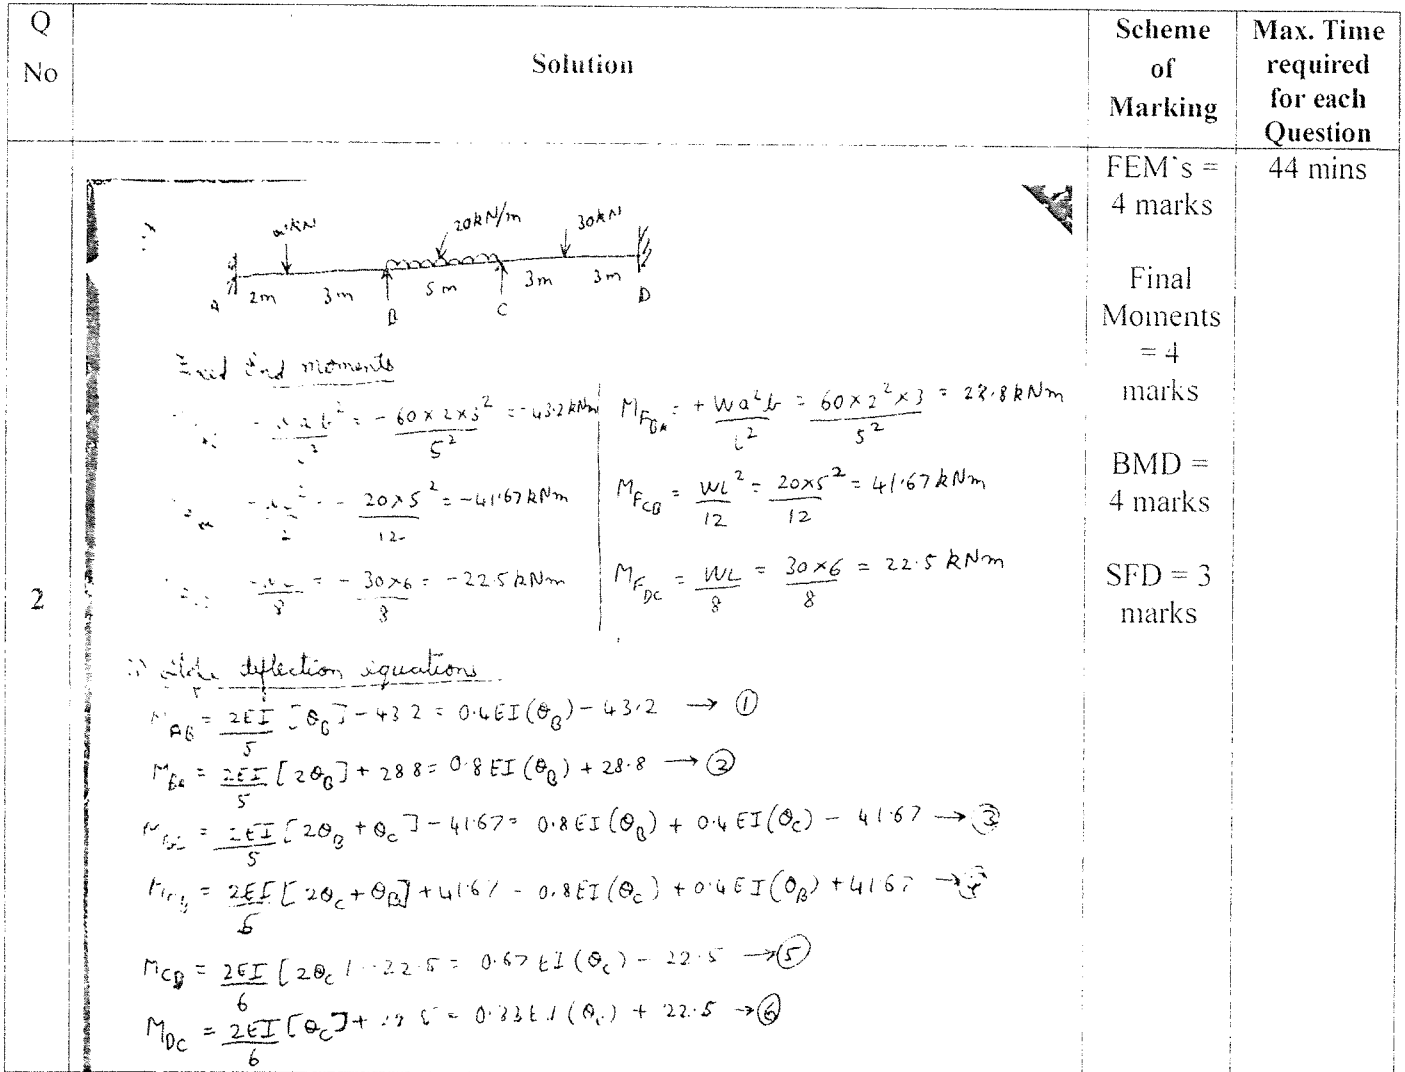 Q No
Solution
Scheme of Marking
Max. Time required for each Question
2
FEM`s = 4 marks
Final Moments = 4 marks
BMD = 4 marks
SFD = 3 marks
44 mins
kN 20kN/m 30kN
A 2m 3m B 5m C 3m 3m D
End moments
= - 60×2×3² / 5² = -43.2kNm
M_FBA = + Wa²b / L² = 60×2²×3 / 5² = 28.8kNm
- 20×5² / 12 = -41.67kNm
M_FCB = WL² / 12 = 20×5² / 12 = 41.67kNm
/ 8 = - 30×6 / 8 = -22.5kNm
M_FDC = WL / 8 = 30×6 / 8 = 22.5 kNm
deflection equations
M_AB = 2EI/5 [θ_B] - 43.2 = 0.4EI(θ_B) - 43.2 → ①
M_BA = 2EI/5 [2θ_B] + 28.8 = 0.8EI(θ_B) + 28.8 → ②
= 2EI/5 [2θ_B + θ_C] - 41.67 = 0.8EI(θ_B) + 0.4EI(θ_C) - 41.67 → ③
= 2EI/5 [2θ_C + θ_B] + 41.67 = 0.8EI(θ_C) + 0.4EI(θ_B) + 41.67 → ④
M_CD = 2EI/6 [2θ_C] - 22.5 = 0.67EI(θ_C) - 22.5 → ⑤
M_DC = 2EI/6 [θ_C] + = 0.33EI(θ_C) + 22.5 → ⑥